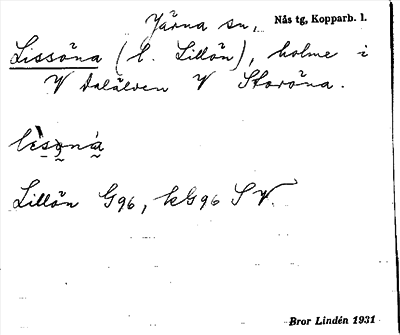 Järna sn. Nås tg, Kopparb. l.
Lissöna (l. Lillön), holme i
V Dalälven V Storöna.
Lillön G96, kG96 SV.
Bror Lindén 1931